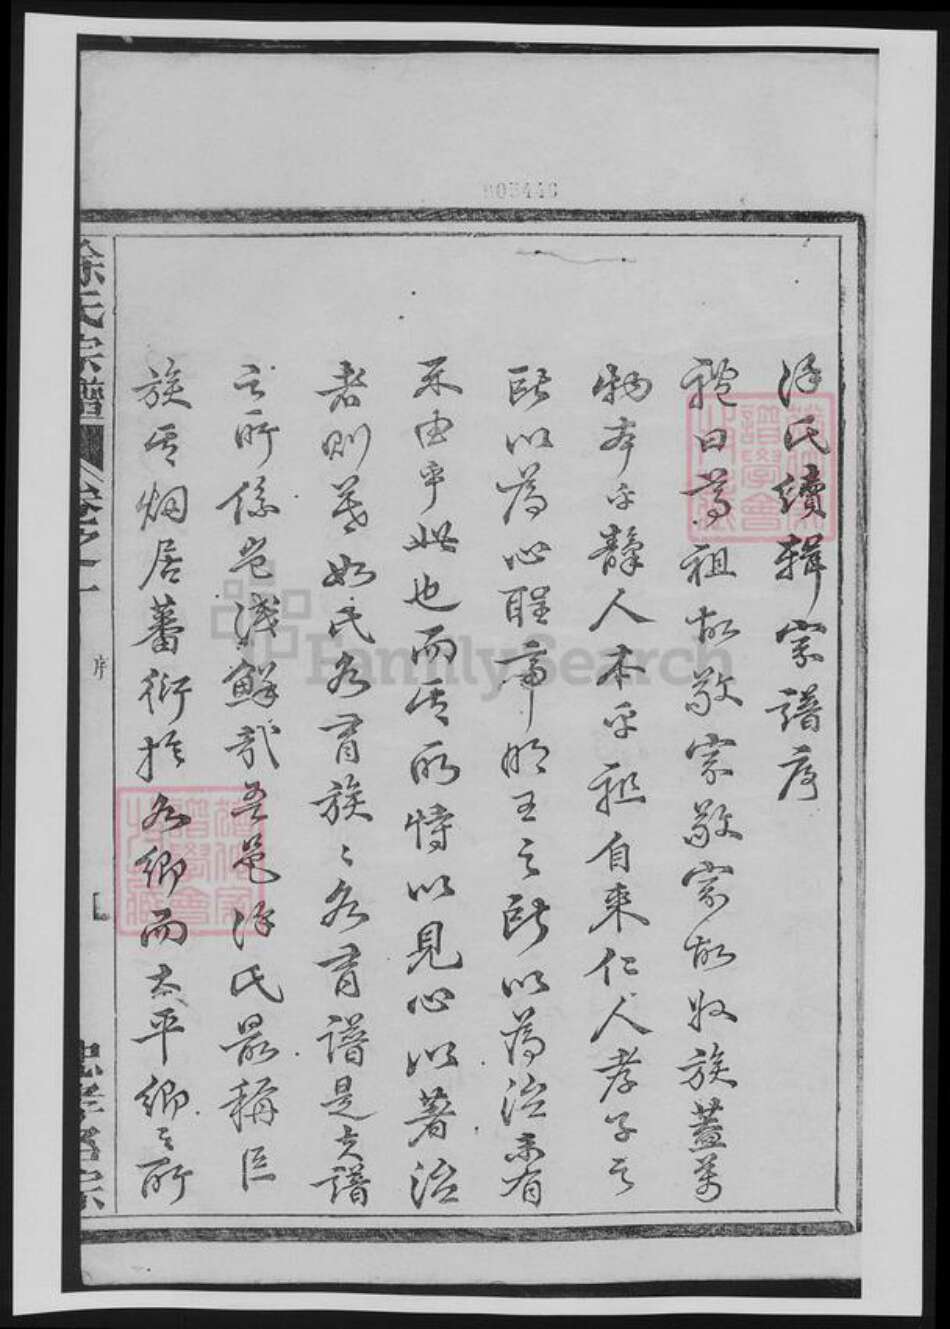 003446
徐氏續輯宗譜序
禮曰尊祖故敬宗敬宗故收族蓋萬
物本乎靜人本乎祖自來仁人孝子之
所以為心聖帝明王之所以為治未有
不由乎此也而其所恃以見心以著治
者則莫如氏各有族〻各有譜是夫譜
之所係豈淺鮮哉吾邑徐氏最稱巨
族其烟居蕃衍於各鄉而太平鄉之所
徐氏宗譜
卷之一
序
FamilySearch